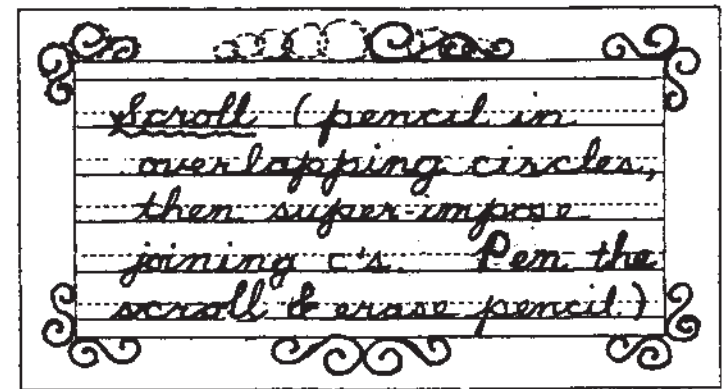 Scroll (pencil in
overlapping circles,
then super-impose
joining c's. Pen the
scroll & erase pencil.)